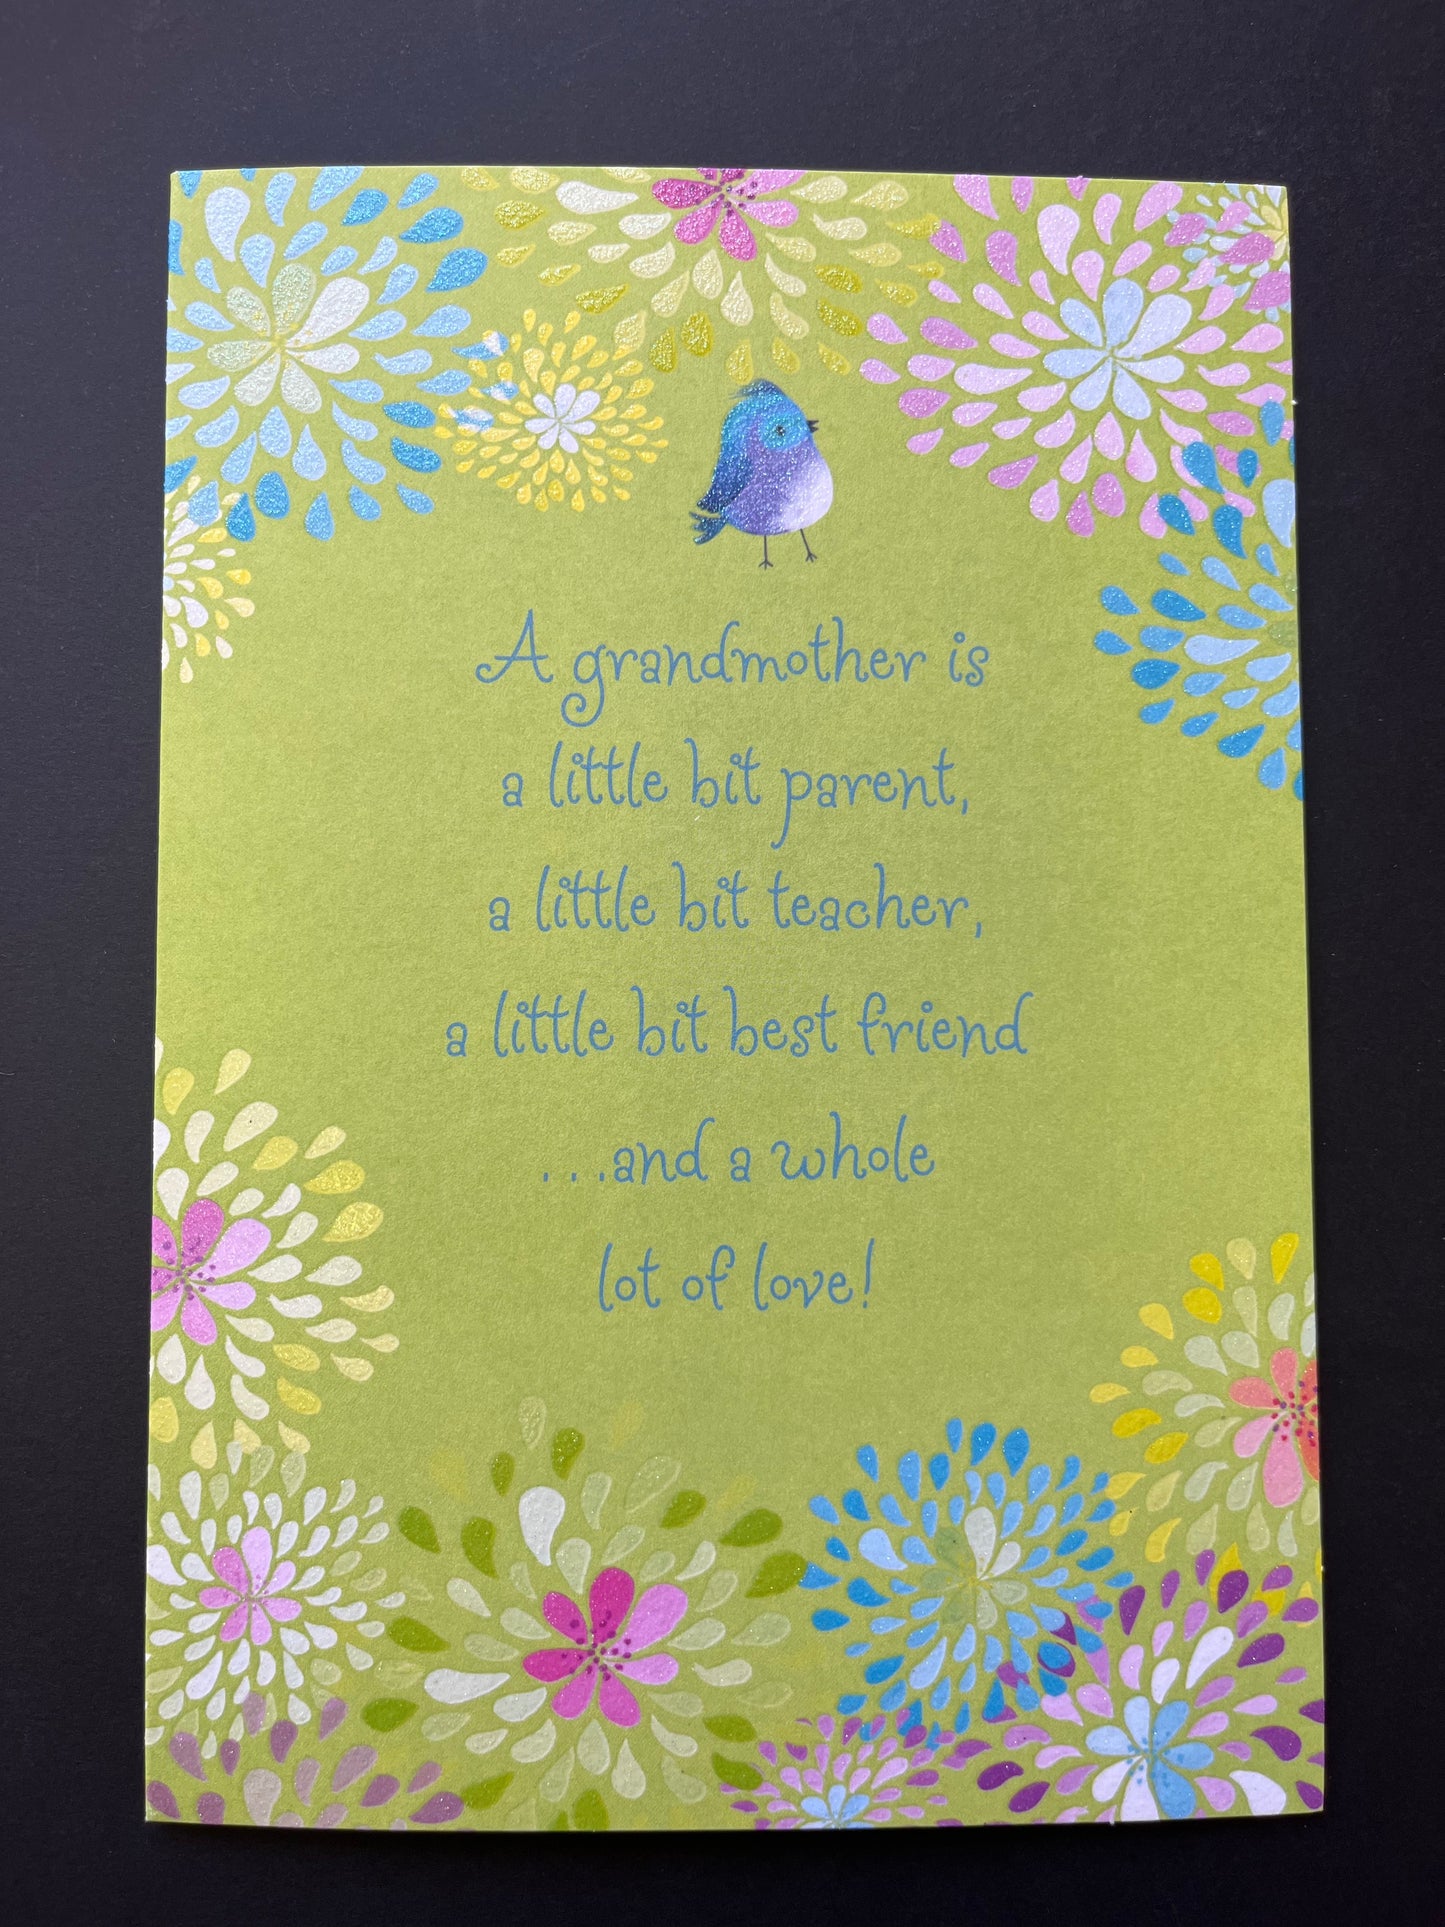 A grandmother is
a little bit parent,
a little bit teacher,
a little bit best friend
...and a whole
lot of love!